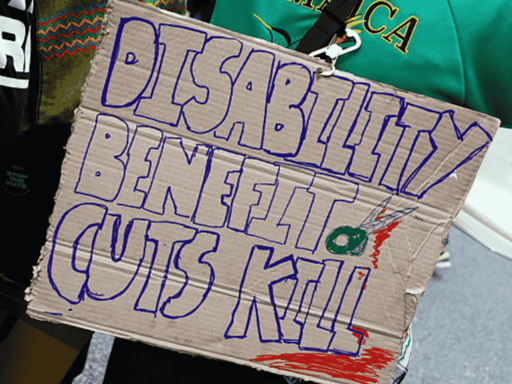 DISABILITY
BENEFIT
CUTS KILL